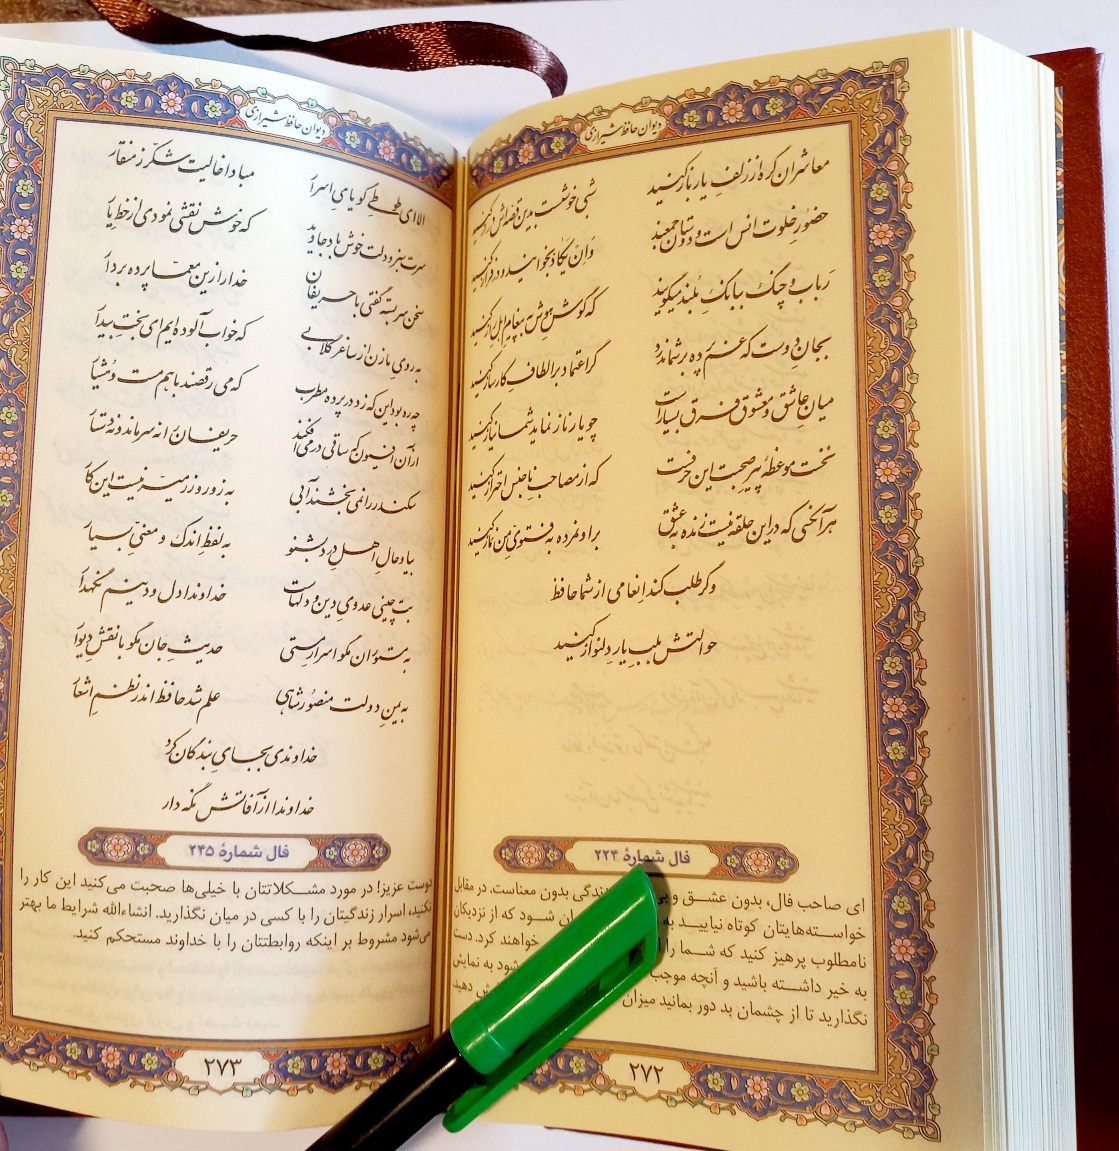 دیوان حافظ شیرازی
معاشران گره از زلف یار باز کنید شبی خوشست بدین قصه‌اش دراز کنید
حضور خلوت انس است و دوستان جمعند وان یکاد بخوانید و در فراز کنید
رباب و چنگ ببانگ بلند میگویند که گوش هوش به پیغام اهل راز کنید
بجان دوست که غم پرده بر شما ندرد گر اعتماد بر الطاف کارساز کنید
میان عاشق و معشوق فرق بسیارست چو یار ناز نماید شما نیاز کنید
نخست موعظهٔ پیر صحبت این حرفست که از مصاحب ناجنس احتراز کنید
هر آنکسی که در این حلقه نیست زنده به عشق بر او نمرده به فتوی من نماز کنید
وگر طلب کند انعامی از شما حافظ
حوالتش بلب یار دلنواز کنید
فال شمارهٔ ۲۲۴
ای صاحب فال، بدون عشق و زندگی بدون معناست. در مقابل
خواسته‌هایتان کوتاه نیایید شود که از نزدیکان
نامطلوب پرهیز کنید که شما را خواهند کرد. دست
به خیر داشته باشید و آنچه موجب شود به نمایش
نگذارید تا از چشمان بد دور بمانید میزان دهید
۲۷۲
دیوان حافظ شیرازی
الا ای طوطی گویای اسرار مبادا خالیت شکر ز منقار
سرت سبز و دلت خوش باد جاوید که خوش نقشی نمودی از خط یار
سخن سربسته گفتی با حریفان خدا را زین معما پرده بردار
به روی ما زن از ساغر گلابی که خواب آلوده‌ایم ای بخت بیدار
چه ره بود این که زد در پرده مطرب که می رقصند با هم مست و هشیار
از آن افیون که ساقی در می افکند حریفان را نه سر ماند و نه دستار
سکندر را نمی بخشند آبی به زور و زر میسر نیست این کار
بیا و حال اهل درد بشنو به لفظ اندک و معنی بسیار
بت چینی عدوی دین و دلهاست خداوندا دل و دینم نگهدار
به مستوران مگو اسرار مستی حدیث جان مگو با نقش دیوار
به یمن دولت منصور شاهی علم شد حافظ اندر نظم اشعار
خداوندی بجای بندگان کرد
خداوندا ز آفاتش نگه دار
فال شمارهٔ ۲۴۵
دوست عزیز! در مورد مشکلاتتان با خیلی‌ها صحبت می‌کنید این کار را
نکنید، اسرار زندگیتان را با کسی در میان نگذارید. انشاءالله شرایط ما بهتر
می‌شود مشروط بر اینکه روابطتتان را با خداوند مستحکم کنید.
۲۷۳